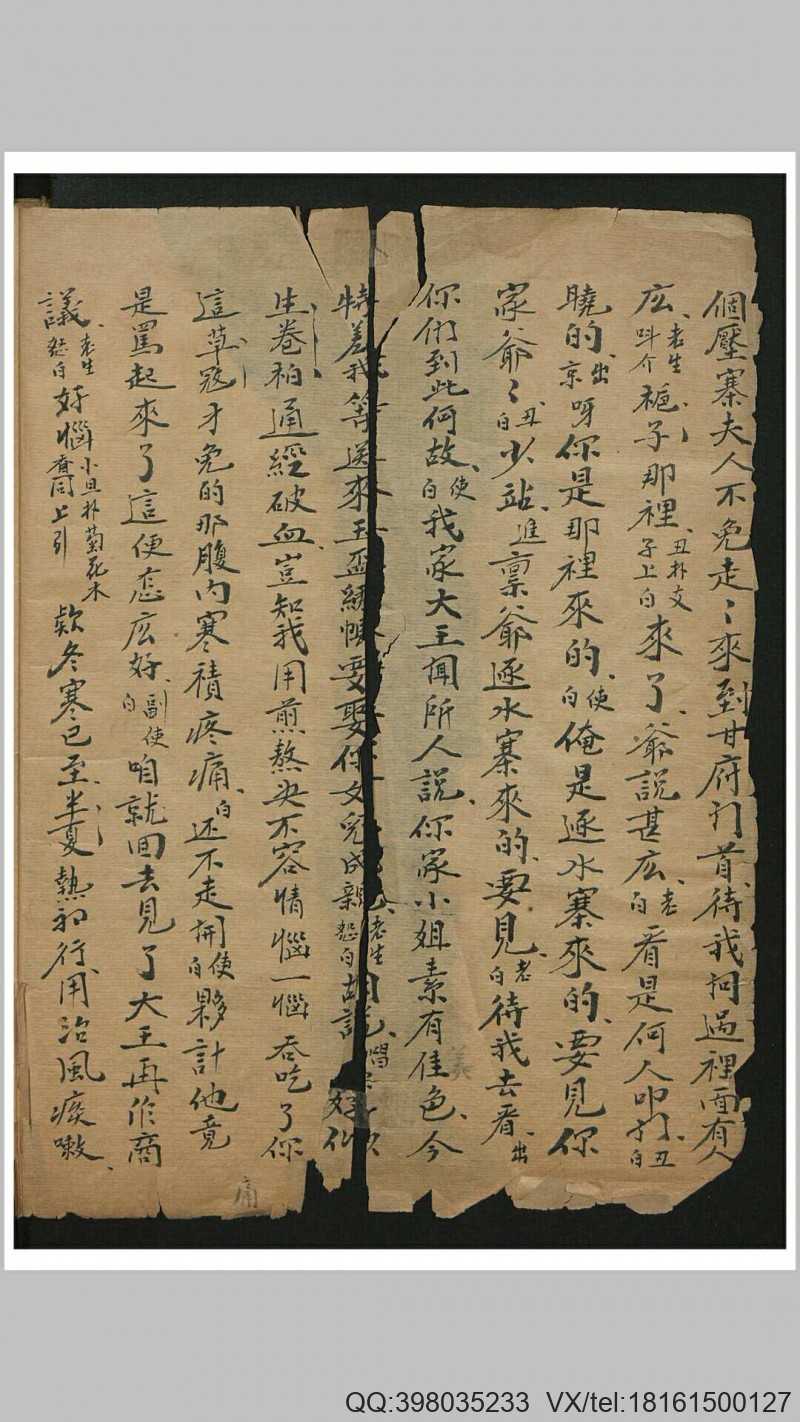 個壓寨夫人不免走〻來到甘府门首待我問過裡面有人
庅老生呌介栀子那裡丑朴文子上白來了爺說甚庅老白看是何人叩门丑白
曉的出京呀你是那裡來的使白俺是逐水寨來的要見你
家爺〻丑白少站進禀爺逐水寨來的要見老白待我去看出
你们到此何故使白我家大王聞所人說你家小姐素有佳色今
特差我等送來玉盃 要娶你女兒成親老生怒白胡說唱 好似
生卷柏通經破血豈知我用煎熬决不容情惱一惱吞吃了你
這草寇才免的那腹内寒積疼痛白还不走 使白夥計他竟
是罵起來了這便怎庅好副使白咱就回去見了大王再作商
議老生怒白好惱小旦朴菊花木香同上引欵冬寒已至半夏熱初行用治風痰嗽
痛
QQ:398035233 VX/tel:18161500127